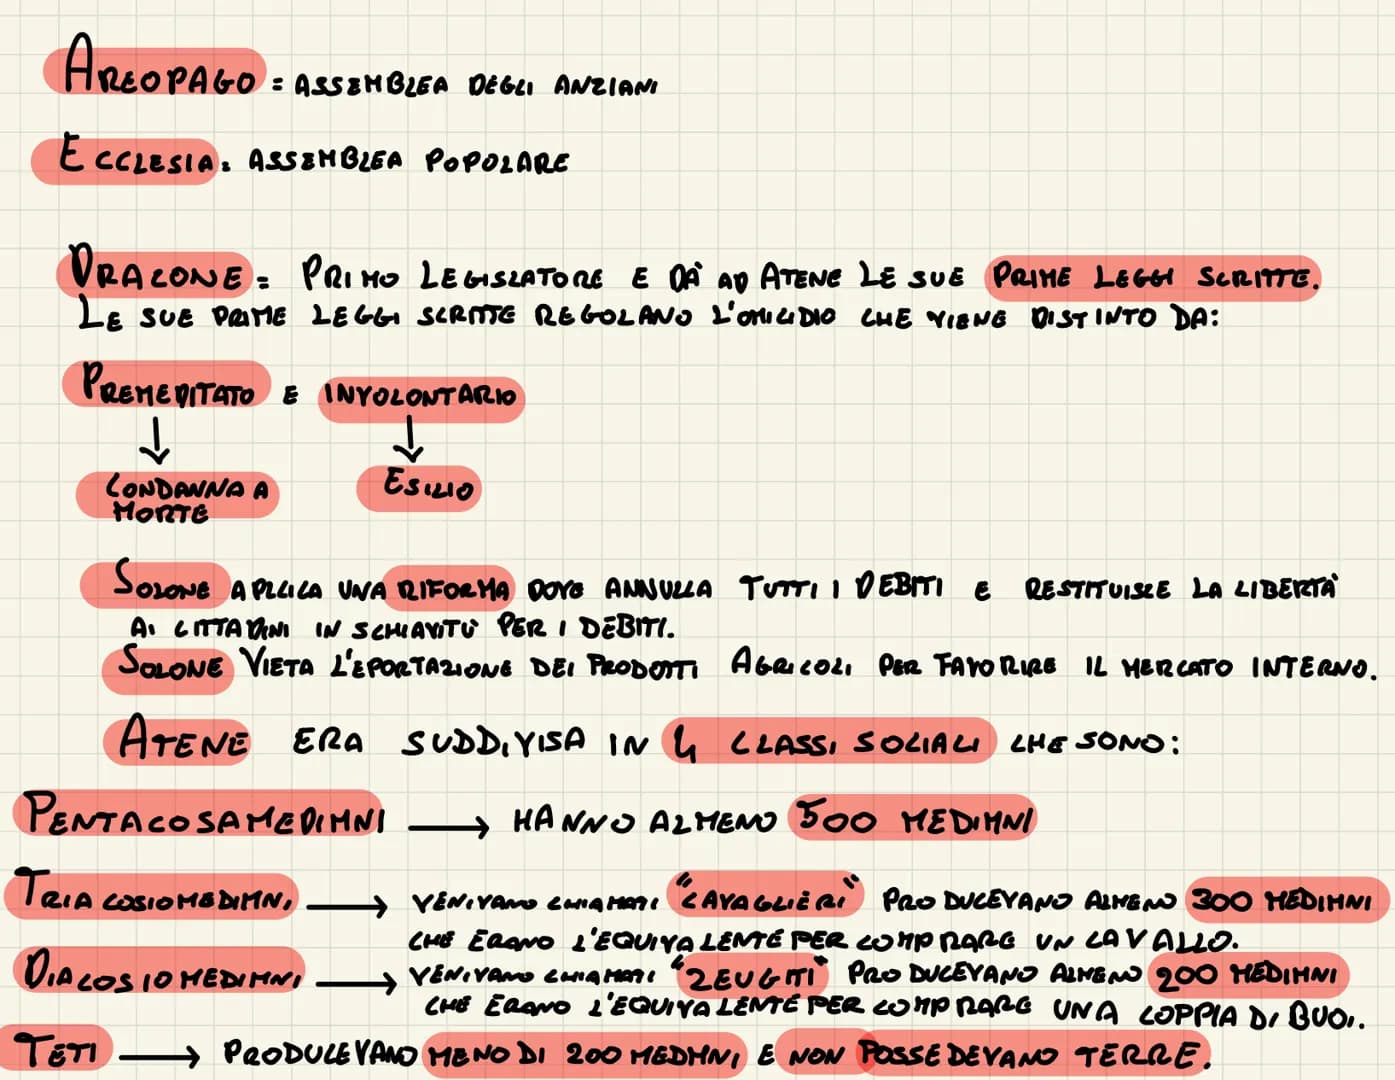 AREOPAGO = ASSEMBLEA DEGLI ANZIANI
ECCLESIA = ASSEMBLEA POPOLARE
DRACONE = PRIMO LEGISLATORE E DÀ AD ATENE LE SUE PRIME LEGGI SCRITTE.
LE SUE PRIME LEGGI SCRITTE REGOLANO L'OMICIDIO CHE VIENE DISTINTO DA:
PREMEDITATO E INVOLONTARIO
↓ ↓
CONDANNA A MORTE ESILIO
SOLONE APPLICA UNA RIFORMA DOVE ANNULLA TUTTI I DEBITI E RESTITUISCE LA LIBERTÀ
AI CITTADINI IN SCHIAVITÙ PER I DEBITI.
SOLONE VIETA L'EPORTAZIONE DEI PRODOTTI AGRICOLI PER FAVORIRE IL MERCATO INTERNO.
ATENE ERA SUDDIVISA IN 4 CLASSI SOCIALI CHE SONO:
PENTACOSAMEDIMNI → HANNO ALMENO 500 MEDIMNI
TRIACOSIOMEDIMNI → VENIVANO CHIAMATI "CAVAGLIERI" PRODUCEVANO ALMENO 300 MEDIMNI
CHE ERANO L'EQUIVALENTE PER COMPRARE UN CAVALLO.
DIACOSIOMEDIMNI → VENIVANO CHIAMATI "ZEUGITI" PRODUCEVANO ALMENO 200 MEDIMNI
CHE ERANO L'EQUIVALENTE PER COMPRARE UNA COPPIA DI BUOI.
TETI → PRODUCEVANO MENO DI 200 MEDMNI E NON POSSEDEVANO TERRE.